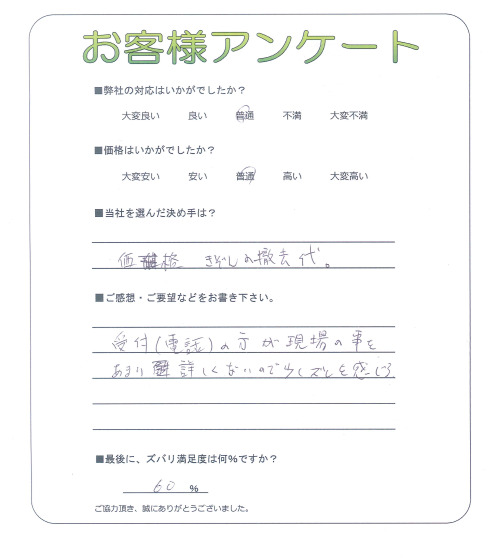 お客様アンケート
■弊社の対応はいかがでしたか？
大変良い 良い 普通 不満 大変不満
■価格はいかがでしたか？
大変安い 安い 普通 高い 大変高い
■当社を選んだ決め手は？
価格 きぞんの撤去代。
■ご感想・ご要望などをお書き下さい。
受付(電話)の方が現場の事を
あまり詳しくないので少しズレを感じる
■最後に、ズバリ満足度は何%ですか？
60 %
ご協力頂き、誠にありがとうございました。